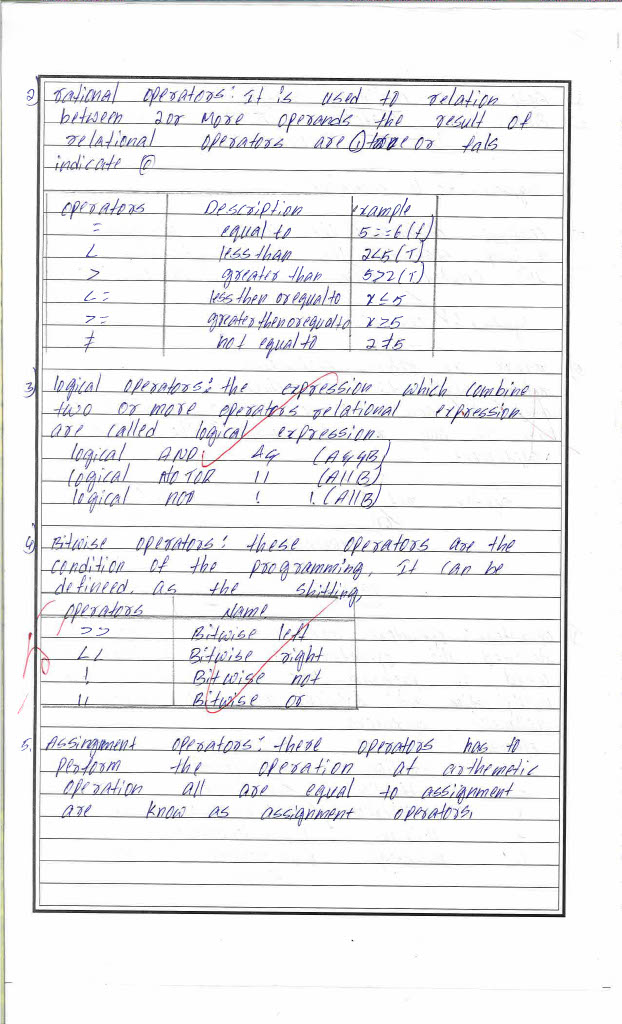 2) rational operators: It is used to relation
between 2or more operands the result of
relational operators are ① true or fals
indicate ⓪
operators Description example
= equal to 5==6(f)
< less than 2<5(T)
> greater than 5>2(T)
<= less then orequalto x≤5
>= greater then orequalto x>5
≠ not equal to 2≠5
3) logical operators: the expression which combine
two or more operators relational expression
are called logical expression.
logical AND && (A&&B)
logical OR || (A||B)
logical not ! !(A||B)
4) Bitwise operators: these operators are the
condition of the programming, It can be
defineed. as the shitting,
operators Name
>> Bitwise left
<< Bitwise right
! Bitwise not
|| Bitwise or
5. Assingment operators: there operators has to
perform the operation at arthemetic
operation all are equal to assignment
are know as assignment operators,